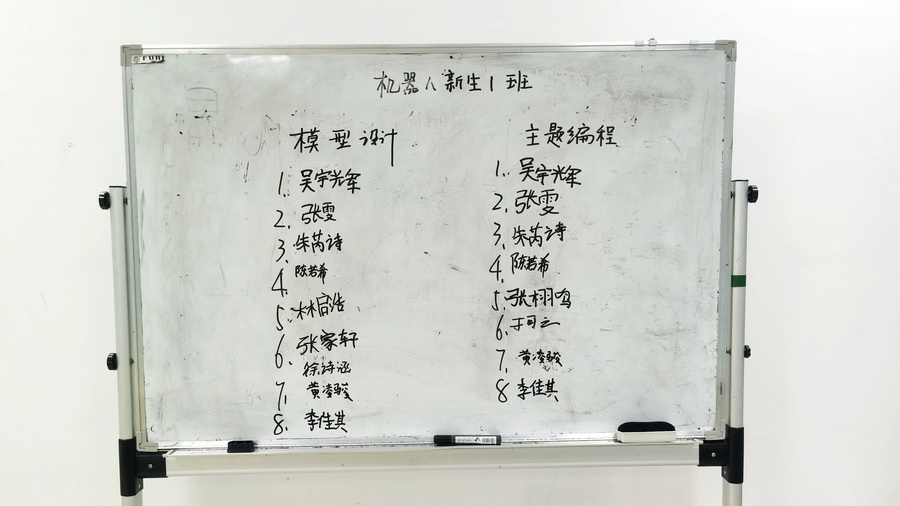 机器人新生1班
模型设计
1. 吴宇光军
2. 张雯
3. 朱芮诗
4. 陈若希
5. 林启浩
6. 张家轩
徐诗涵
7. 黄凌骏
8. 李佳其
主题编程
1. 吴宇光军
2. 张雯
3. 朱芮诗
4. 陈若希
5. 张栩鸣
6. 于可云
7. 黄凌骏
8 李佳其